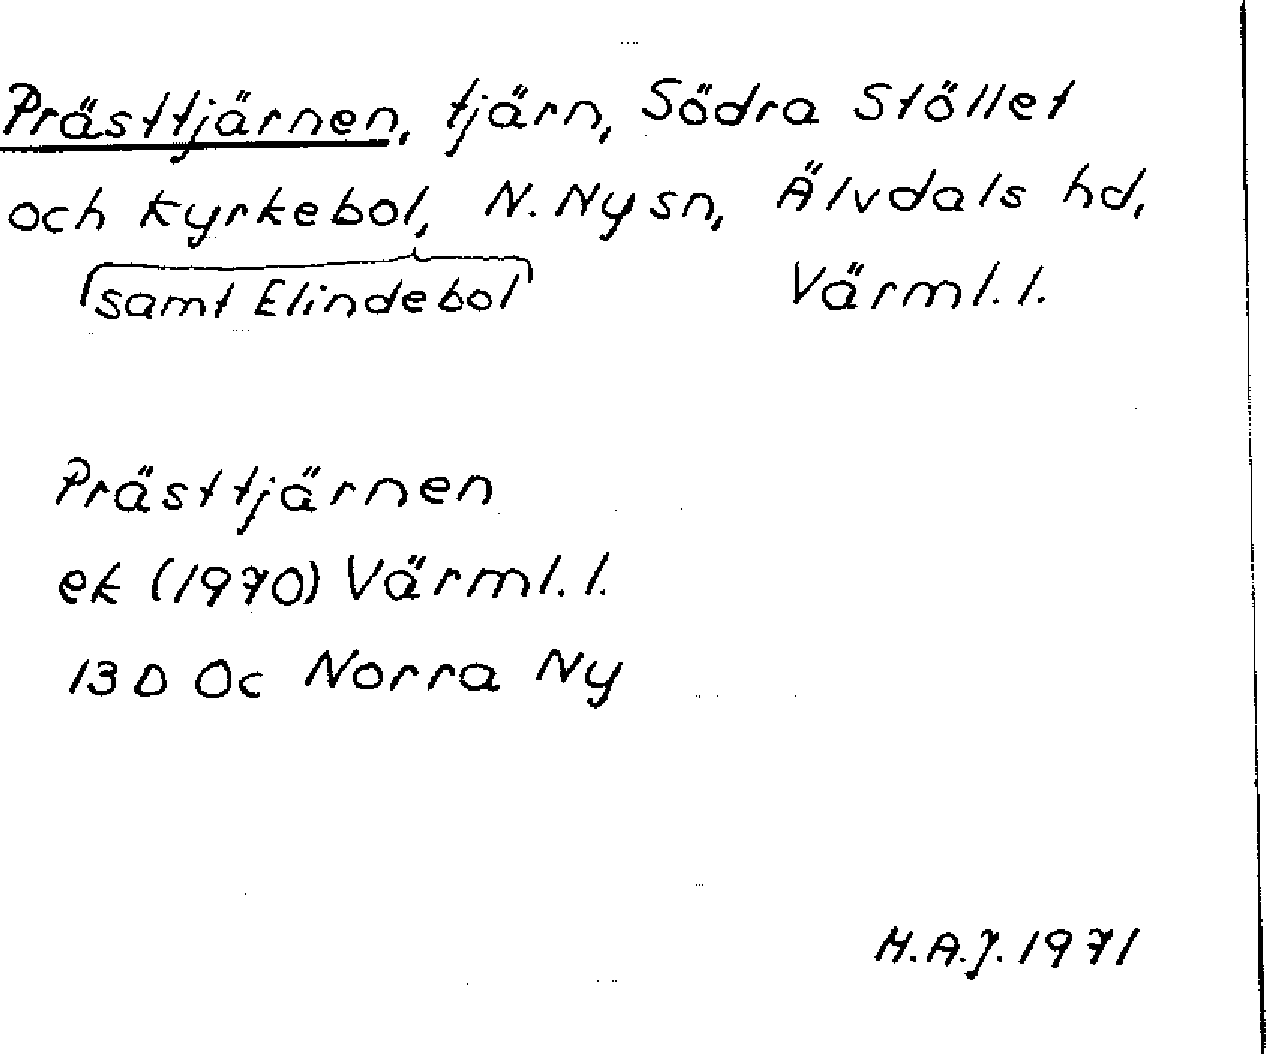 Prästtjärnen, tjärn, Södra Stöllet
och Kyrkebol, N. Ny sn, Älvdals hd,
samt Elindebol Värml. l.
Prästtjärnen
ek (1970) Värml. l.
13 D 0c Norra Ny
H.A.J. 1971